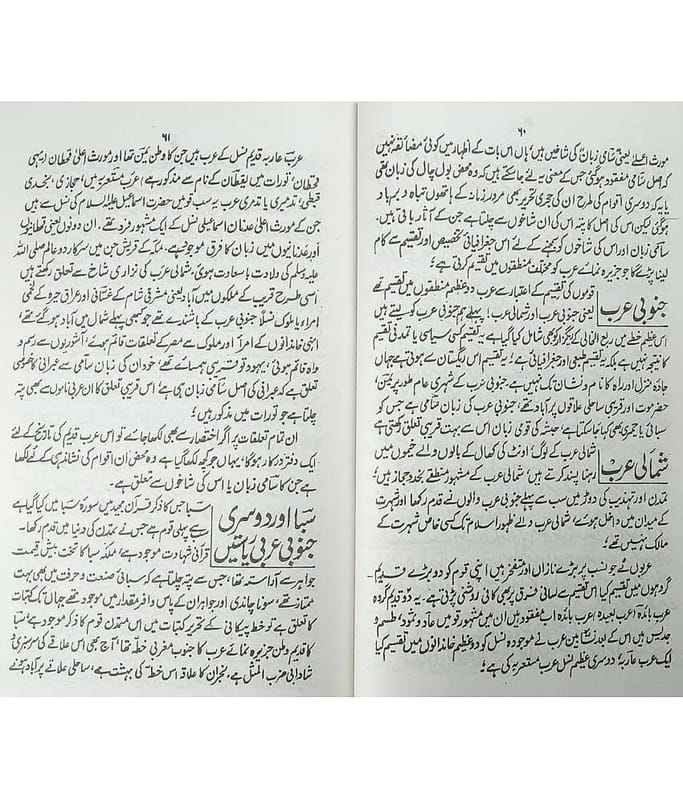 ۶۰
مورث اعلےٰ یعنی سامی زبان کی شاخیں ہیں؛ ہاں اس بات کے اظہار میں کوئی مضائقہ نہیں
کہ اصل سامی مفقود ہوگئی جس کے معنی یہ لئے جاسکتے ہیں کہ وہ محض بول چال کی زبان تھی
یا یہ کہ دوسری اقوام کی طرح ان کی حجری تحریر بھی مرور زمانہ کے ہاتھوں تباہ و برباد
ہوگئی لیکن اس کی اصل کا پتہ اس کی ان شاخوں سے چلتا ہے جن کے آثار باقی ہیں۔
سامی زبان اور اس کی شاخوں کو سمجھنے کے لئے اس جغرافیائی تخصیص اور تقسیم سے کام
لینا پڑے گا جو جزیرہ نمائے عرب کو مختلف منطقوں میں تقسیم کرتی ہے؛
جنوبی عرب
قوموں کی تقسیم کے اعتبار سے عرب دو عظیم منطقوں میں تقسیم تھے
یعنی جنوبی عرب اور شمالی عرب؛ پہلے ہم جنوبی عرب کو لیتے ہیں
اس عظیم خطے میں ربع الخالی کے ریگزار کو بھی شامل کیا گیا ہے یہ تقسیم کسی سیاسی یا تمدنی تقسیم
کا نتیجہ نہیں ہے بلکہ یہ تقسیم طبعی اور جغرافیائی ہے؛ یہ تقسیم اس ریگستان سے ہوتی ہے جہاں
جادہ منزل اور راہ کا نام و نشان تک نہیں ہے جنوبی عرب کے شہری عام طور پر یمن،
حضرموت اور قریبی ساحلی علاقوں پر آباد تھے؛ جنوبی عرب کی زبان سامی ہے جس کو
سبائی یا حمیری بھی کہا جا سکتا ہے؛ حبشہ کی قومی زبان اس سے بہت قریبی تعلق رکھتی ہے
شمالی عرب
شمالی عرب کے لوگ؛ اونٹ کی کھال کے بالوں والے خیموں میں
رہنا پسند کرتے ہیں؛ شمالی عرب کے مشہور منطقے نجد و حجاز ہیں؛
تمدن اور تہذیب کی دوڑ میں سب سے پہلے جنوبی عرب والوں نے قدم رکھا اور شہرت
کے میدان میں داخل ہوئے؛ شمالی عرب والے ظہور اسلام تک کسی خاص شہرت کے
مالک نہیں تھے؛
عربوں نے جو نسب پر بڑے نازاں اور متفخر ہیں اپنی قوم کو دو بڑے قدیم
گروہوں میں تقسیم کیا اس تقسیم سے لسانی فرق پر بھی کافی روشنی پڑتی ہے۔ یہ دو قدیم گروہ
عرب بائدہ (عرب بعیدہ) عرب بائدہ اب مفقود ہیں ان میں مشہور تو میں عاد و ثمود، طسم و
جدیس ہیں اس کے بعد نسابین عرب نے موجودہ نسل کو دو عظیم خاندانوں میں تقسیم کیا
ایک عرب عاربہ؛ دوسری عظیم نسل عرب مستعربہ کی ہے؛
۶۱
عرب عاربہ قدیم نسل کے عرب ہیں جن کا وطن یمن تھا اور مورث اعلیٰ قحطان (یہی
قحطان، تورات میں یقطان کے نام سے مذکور ہے) عرب مستعربہ میں؛ حجازی، نجدی
قبطی؛ تدمیری یا تدمری عرب یہ سب قومیں حضرت اسماعیل علیہ السلام کی نسل سے ہیں
جن کے مورث اعلیٰ عدنان اسماعیلی نسل کے ایک مشہور فرد تھے۔ ان دونوں یعنی قحطانیوں
اور عدنانیوں میں زبان کا فرق موجود ہے۔ مکہ کے قریش جن میں سرکار دو عالم صلی اللہ
علیہ وسلم کی ولادت باسعادت ہوئی، شمالی عرب کی نزاری شاخ سے تعلق رکھتے ہیں
اسی طرح قریب کے ملکوں میں آباد یعنی مشرقی شام کے غسانی اور عراق حیرہ کے لخمی
امراء یا ملوک نسلاً جنوبی عرب کے باشندے تھے جو کبھی پہلے شمال میں آباد ہو گئے تھے؛
انہی خاندانوں کے امراء اور ملوک سے مصر کے تعلقات قائم ہوئے؛ آشوریوں سے رسم و
راہ قائم ہوئی؛ یہود تو قریبی ہمسائے تھے؛ خود ان کی زبان سامی سے عبرانی کا خصوصی
تعلق ہے کہ عبرانی کی اصل سامی زبان ہی ہے؛ اس قریبی تعلق کا ان عربی ناموں سے بھی پتہ
چلتا ہے جو تورات میں مذکور ہیں؛
ان تمام تعلقات پر اگر اختصار سے بھی لکھا جائے تو اس عرب قدیم کی تاریخ کے لئے
ایک دفتر درکار ہوگا، یہاں جو کچھ لکھا گیا ہے وہ محض ان اقوام کی نشاندہی کے لئے لکھا
ہے جن کا سامی زبان یا اس کی شاخوں سے تعلق ہے۔
سبا اور دوسری
جنوبی عربی ریاستیں
سبا جس کا ذکر قرآن مجید میں سورہ سبا میں کیا گیا ہے
سب سے پہلی قوم ہے جس نے تمدن کی دنیا میں قدم رکھا۔
قرآنی شہادت موجود ہے، ملکہ سبا کا تخت بیش قیمت
جواہر سے آراستہ تھا، جس سے پتہ چلتا ہے کہ سبائی صنعت و حرفت میں بھی بہت
ممتاز تھے، سونا چاندی اور جواہر ان کے پاس وافر مقدار میں موجود تھے جہاں تک کتبات
کا تعلق ہے تو خط پیکانی کے تحریر کتبات میں اس متمدن قوم کا ذکر موجود ہے؛ سبا
کا قدیم وطن جزیرہ نمائے عرب کا جنوب مغربی خطہ تھا؛ آج بھی اس علاقے کی سرسبزی و
شادابی ضرب المثل ہے، نجران کا علاقہ اس خطہ کی بہشت ہے، ساحلی علاقے پر آباد ہونے